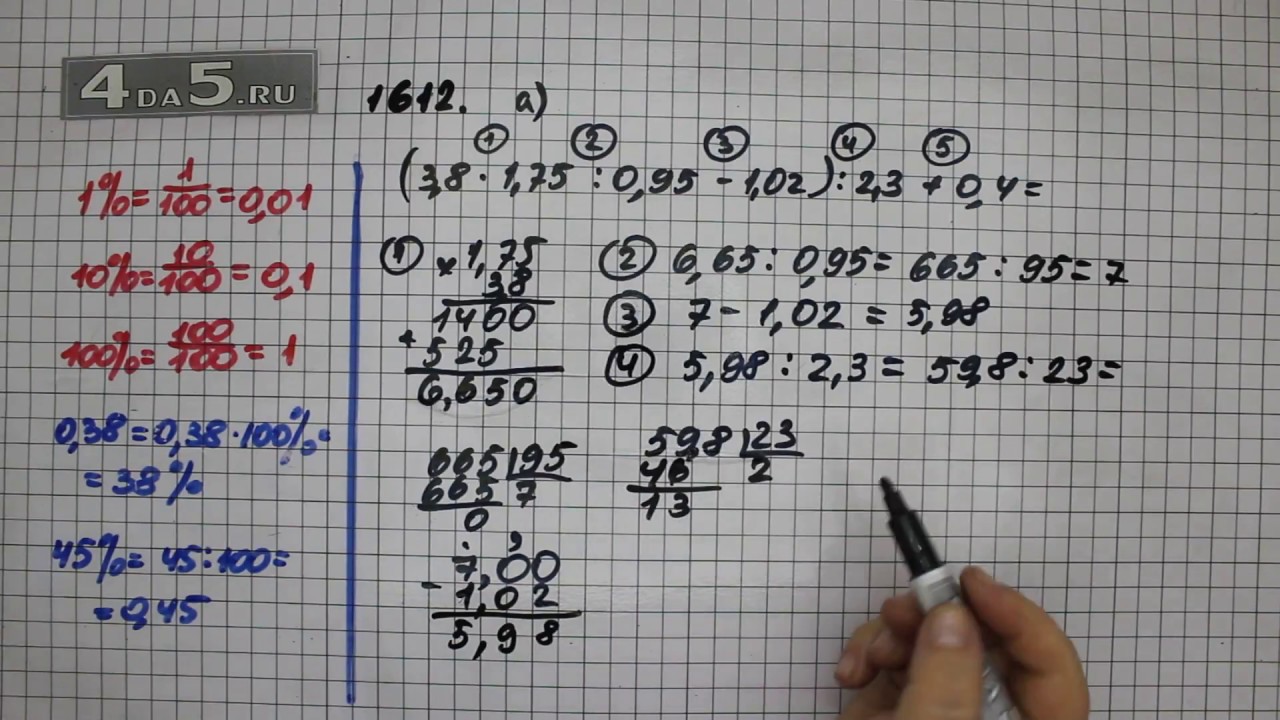 4DA5.RU
1612. а)
① ② ③ ④ ⑤
(3,8 · 1,75 : 0,95 - 1,02) : 2,3 + 0,4 =
1% = 1/100 = 0,01
10% = 10/100 = 0,1
100% = 100/100 = 1
0,38 = 0,38 · 100% =
= 38%
45% = 45 : 100 =
= 0,45
① × 1,75
38
1400
+ 525
6,650
② 6,65 : 0,95 = 665 : 95 = 7
③ 7 - 1,02 = 5,98
④ 5,98 : 2,3 = 59,8 : 23 =
665 | 95
665 7
0
7,00
- 1,02
5,98
59,8 | 23
46 2
13